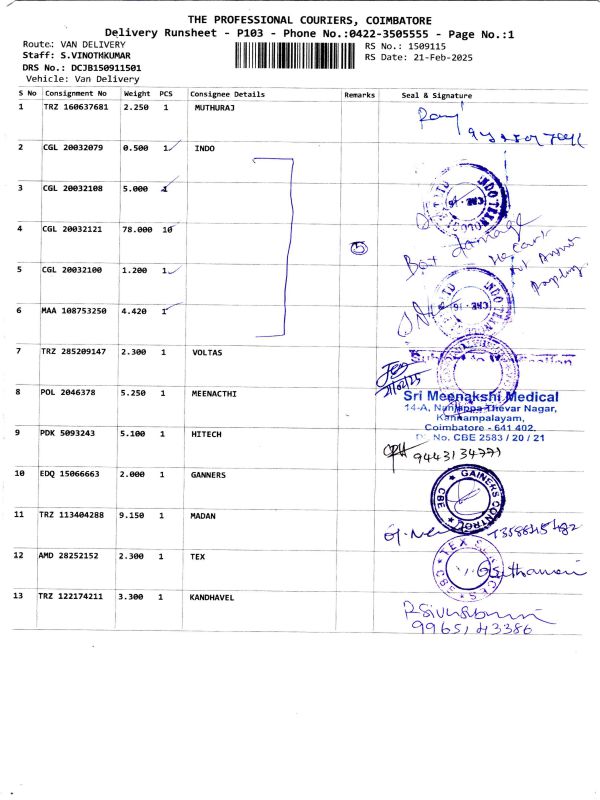 THE PROFESSIONAL COURIERS, COIMBATORE
Delivery Runsheet - P103 - Phone No.:0422-3505555 - Page No.:1
Route: VAN DELIVERY
RS No.: 1509115
Staff: S.VINOTHKUMAR
RS Date: 21-Feb-2025
DRS No.: DCJB150911501
Vehicle: Van Delivery
S No Consignment No Weight PCS Consignee Details Remarks Seal & Signature
1 TRZ 160637681 2.250 1 MUTHURAJ
2 CGL 20032079 0.500 1 INDO
3 CGL 20032108 5.000 1
4 CGL 20032121 78.000 10
5
Box damage
5 CGL 20032100 1.200 1
6 MAA 108753250 4.420 1
7 TRZ 285209147 2.300 1 VOLTAS
8 POL 2046378 5.250 1 MEENACTHI
Sri Meenakshi Medical
14-A, Nanjappa Thevar Nagar,
Kannampalayam,
Coimbatore - 641 402.
No. CBE 2583 / 20 / 21
9 PDK 5093243 5.100 1 HITECH
9443134771
10 EDQ 15066663 2.000 1 GANNERS
GAINERS CONTROL
CBE
11 TRZ 113404288 9.150 1 MADAN
12 AMD 28252152 2.300 1 TEX
13 TRZ 122174211 3.300 1 KANDHAVEL
9965143386